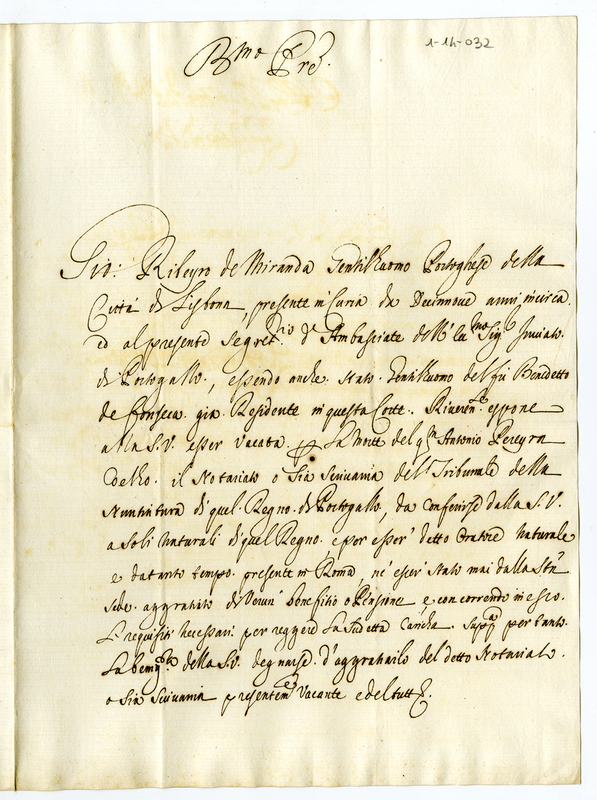 1-14-032
B.mo Pre.
Gio: Ribeyro de Miranda Gentilhuomo Portoghese della
Città di Lisbona, presente in Curia da Decinnove anni incirca
ed al presente Segret.rio d'Ambasciate dell' Ill.mo Sig.r Inviato
di Portogallo, essendo anche stato Gentilhuomo del fù Benedetto
de Fonseca già Residente in questa Corte. Riverent.e espone
alla S.V. esser vacata per la morte del q.m Antonio Pereyra
il Notariato o sia Scrivania del Tribunale della
Nuntiatura di quel Regno di Portogallo, da conferirsi dalla S.V.
a soli naturali di quel Regno, e per esser detto Oratore naturale
e da tanto tempo presente in Roma, nè esser stato mai dalla S.ta
Sede aggratiato di verun Benefitio o Pensione, e concorrendo in esso
requisiti necessari per reggere la sudetta Carica. Supp.ca per tanto
la benig.tà della S.V. degnarsi d'aggratiarlo del detto Notariato
o sia Scrivania presentem.e Vacante e del tutto